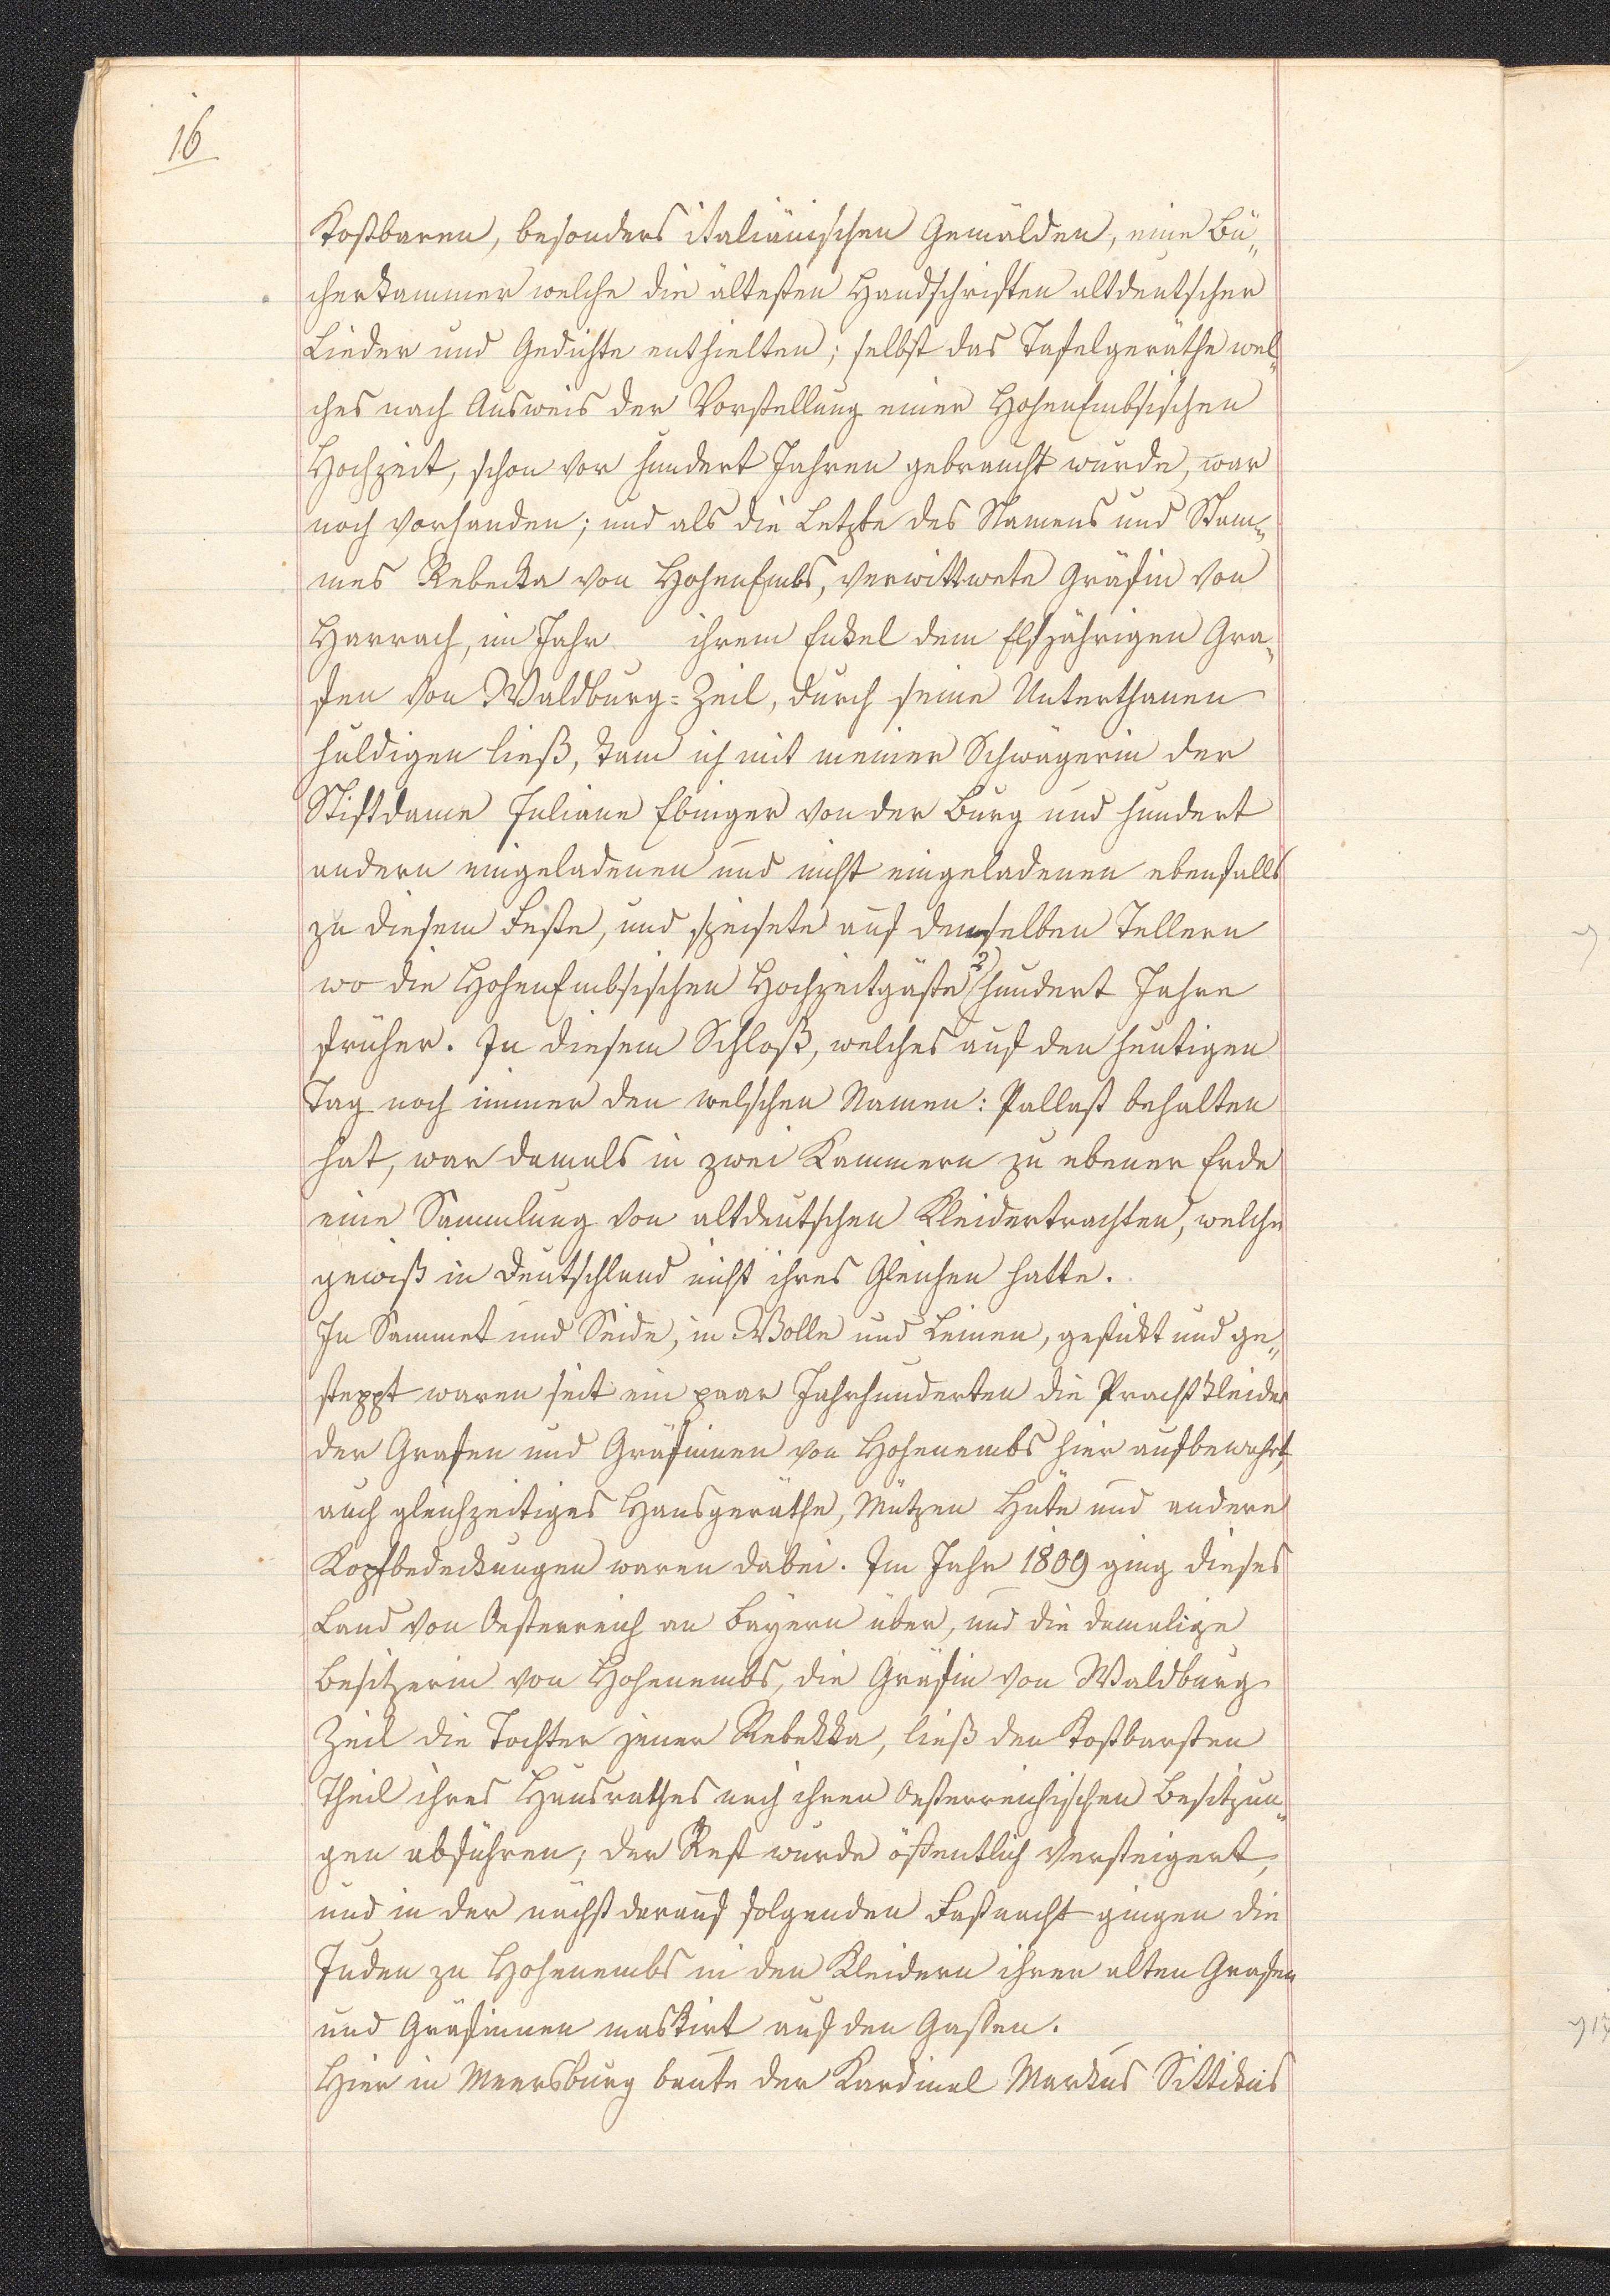 16
kostbaren, besonders italiänischen Gemälden, eine Bü„
cherkammer welche die ältesten Handschriften altdeutscher
Lieder und Gedichte enthielten; selbst das Tafelgeräthe wel„
ches nach Ausweis der Vorstellung einer HohenEmbsischen
Hochzeit, schon vor hundert Jahren gebraucht wurde, war
noch vorhanden; und als die Letzte des Namens und Stam„
mes Rebecka von HohenEmbs, verwittwete Gräfin von
Harrach, im Jahr ihrem Enkel dem Elfjährigen Gra„
fen von Waldburg=Zeil, durch seine Unterthanen
huldigen ließ, kam ich mit meiner Schwägerin der
Stiftdame Juliane Ebinger von der Burg und hundert
andern eingeladenen und nicht eingeladenen ebenfalls
zu diesem Feste, und speisete auf denselben Tellern
wo die HohenEmbsischen Hochzeitgäste 2 hundert Jahre
früher. In diesem Schloß, welches auf den heutigen
Tag noch immer den welschen Namen: Pallast behalten
hat, war damals in zwei Kammern zu ebener Erde
eine Sammlung von altdeutschen Kleidertrachten, welche
gewiß in Deutschland nicht ihres Gleichen hatte.
In Sammet und Seide, in Wolle und Leinen, gestickt und ge„
steppt waren seit ein paar Jahrhunderten die Prachtkleider
der Grafen und Gräfinnen von Hohenembs hier aufbewahrt,
auch gleichzeitiges Hausgeräthe, Mützen Hüte und andere
Kopfbedeckungen waren dabei. Im Jahr 1809 ging dieses
Land von Oesterreich an Bayern über, und die damalige
Besitzerin von Hohenembs, die Gräfin von Waldburg
Zeil die Tochter jener Rebekka, ließ den kostbarsten
Theil ihres Hausrathes nach ihren oesterreichischen Besitzun„
gen abführen; der Rest wurde öffentlich versteigert,
und in der nächst darauf folgenden Fastnacht gingen die
Juden zu Hohenembs in den Kleidern ihrer alten Grafen
und Gräfinnen maskirt auf den Gassen.
Hier in Meersburg baute der Kardinal Markus Sittikus